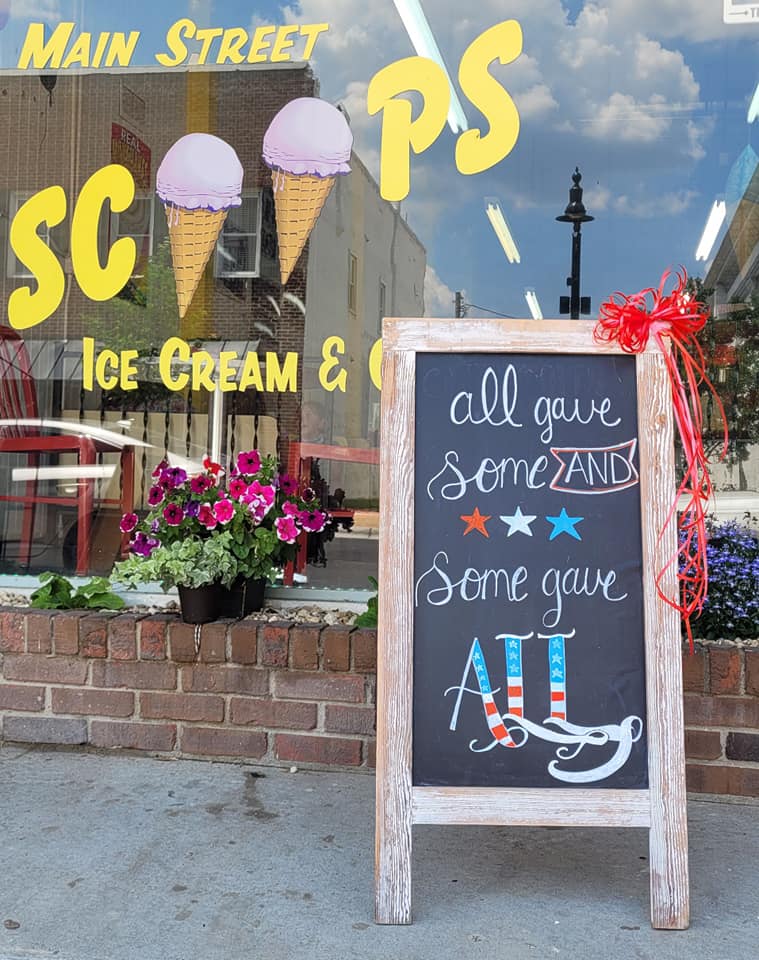 MAIN STREET
SCOOPS
ICE CREAM &
REAL
all gave
some AND
some gave
All